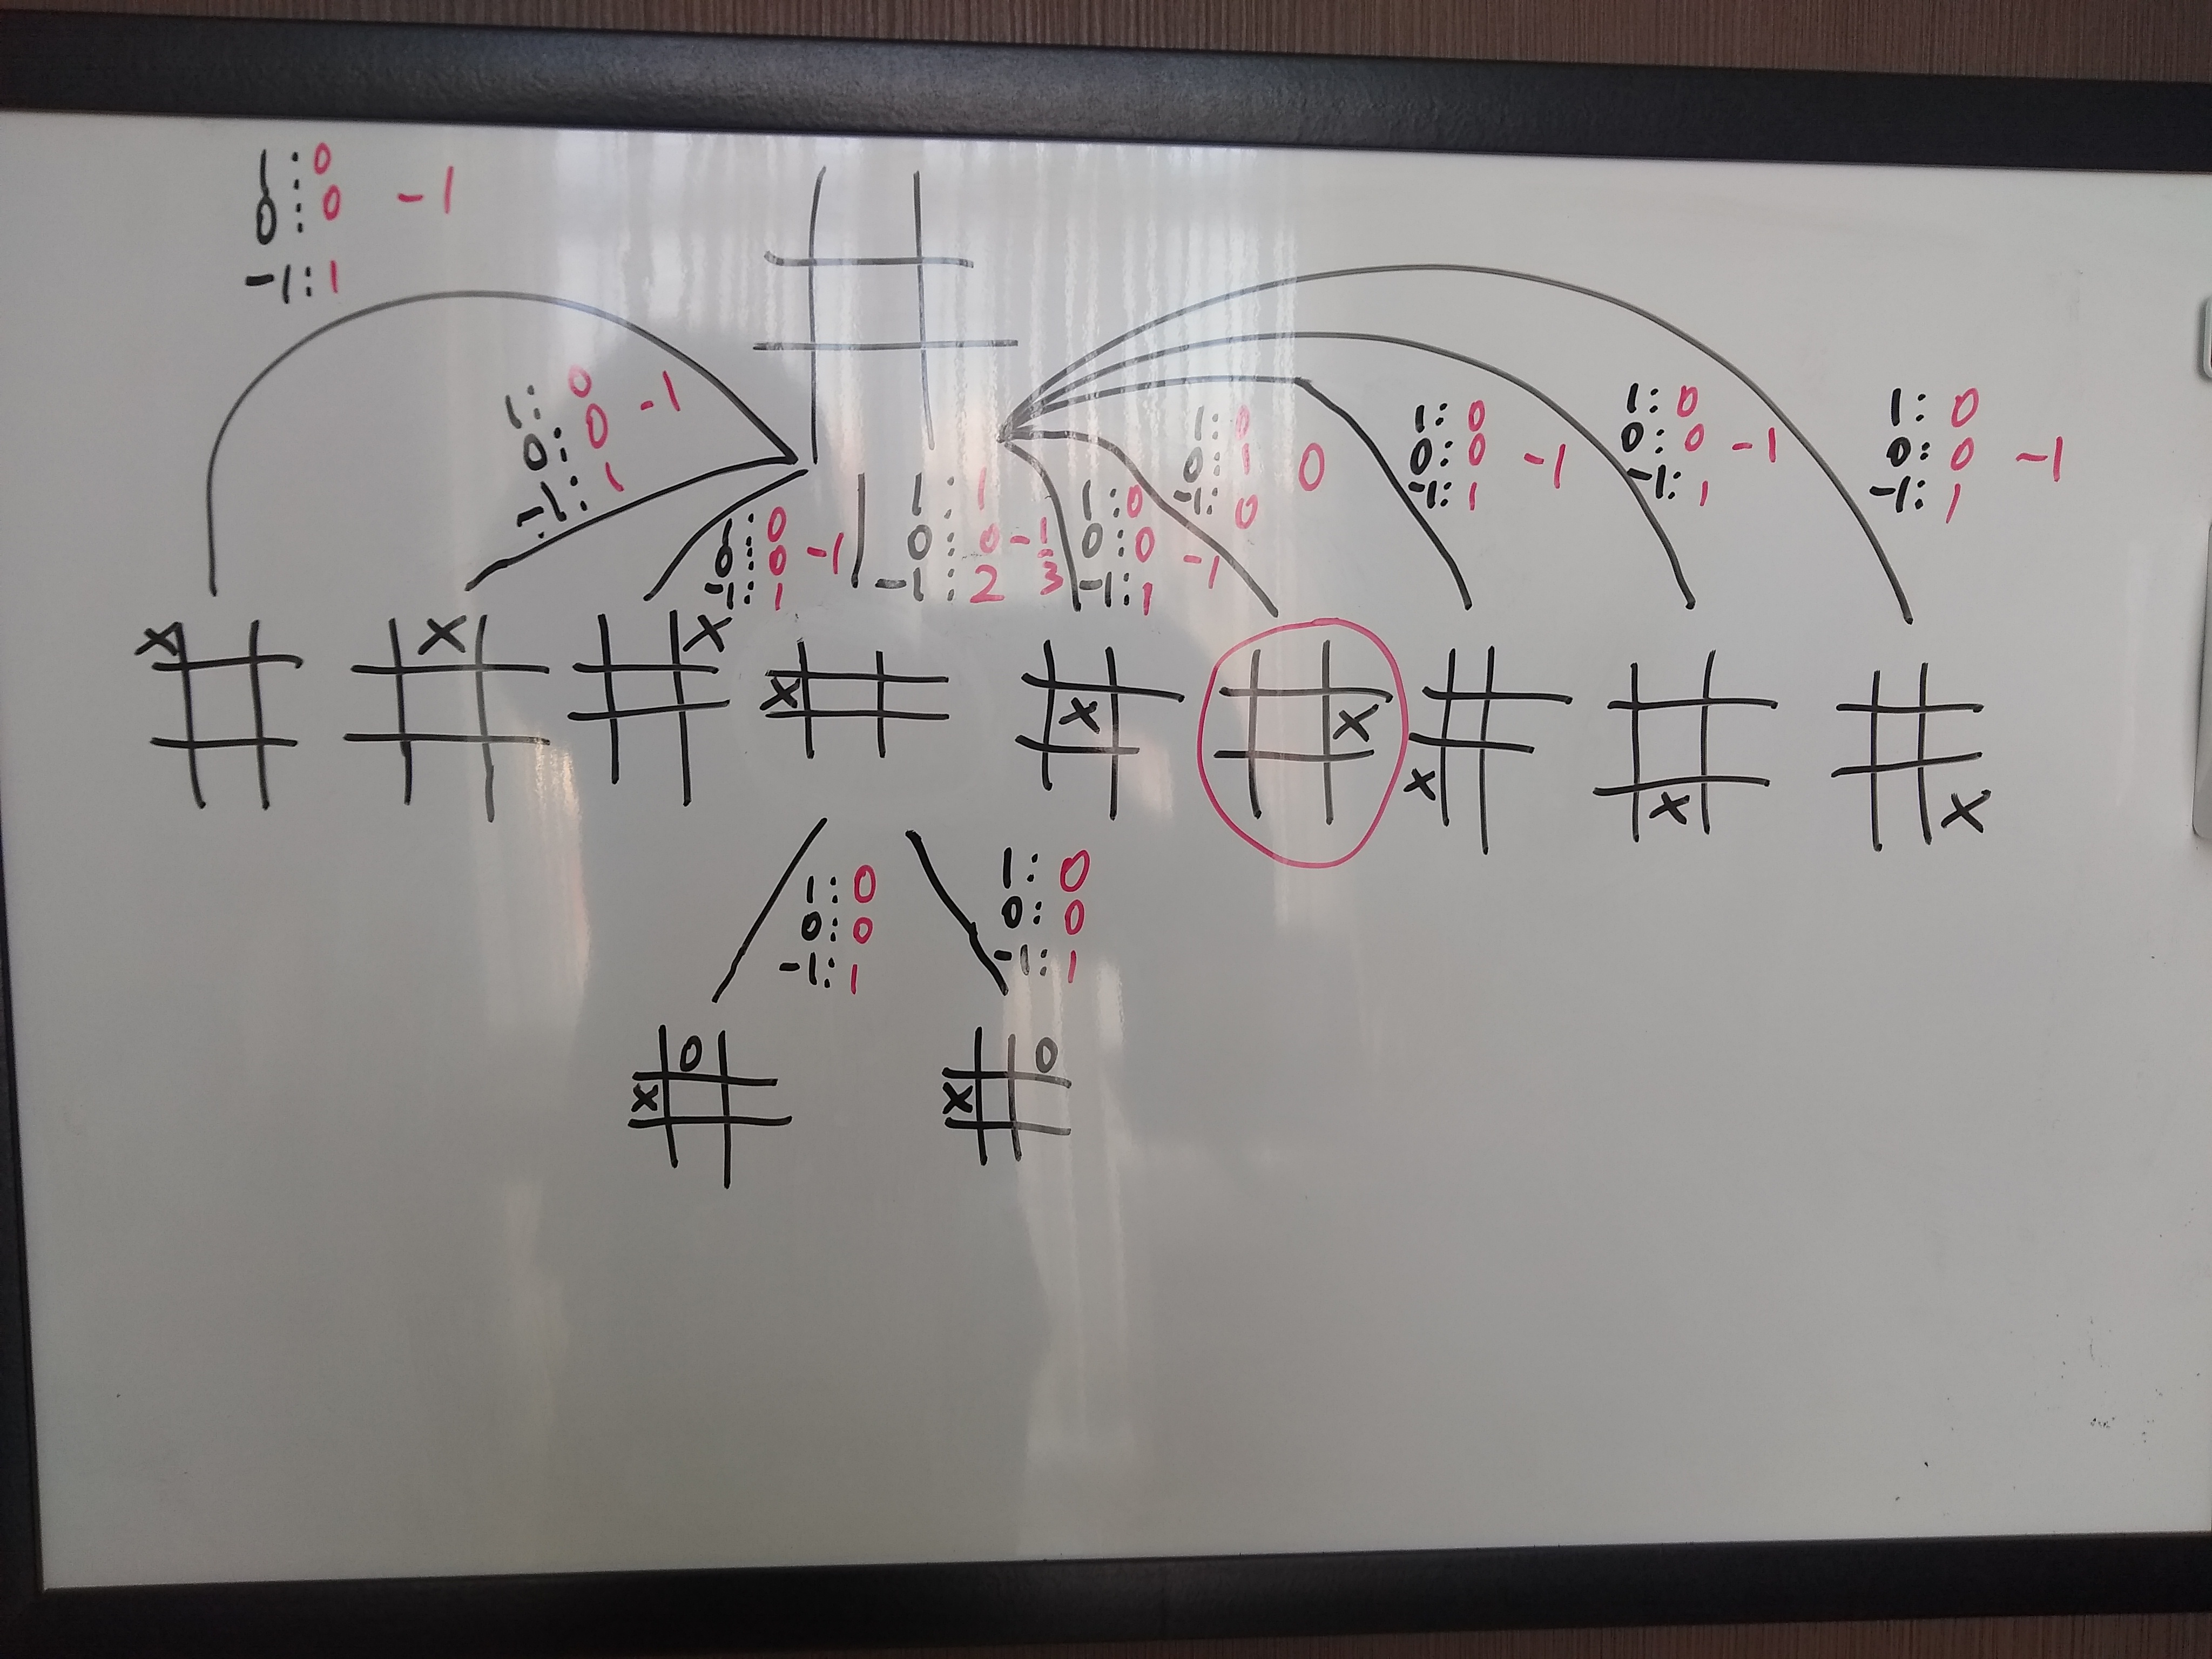 1: 0
0: 0 -1
-1: 1
1: 0
0: 0 -1
-1: 1
1: 0
0: 0 -1
-1: 1
1: 1
0: 0 -1
-1: 2 3
1: 0
0: 0 -1
-1: 1
1: 0
0: 1 0
-1: 0
1: 0
0: 0 -1
-1: 1
1: 0
0: 0 -1
-1: 1
1: 0
0: 0 -1
-1: 1
X
X
X
X
X
X
X
X
X
1: 0
0: 0
-1: 1
1: 0
0: 0
-1: 1
O
X
O
X